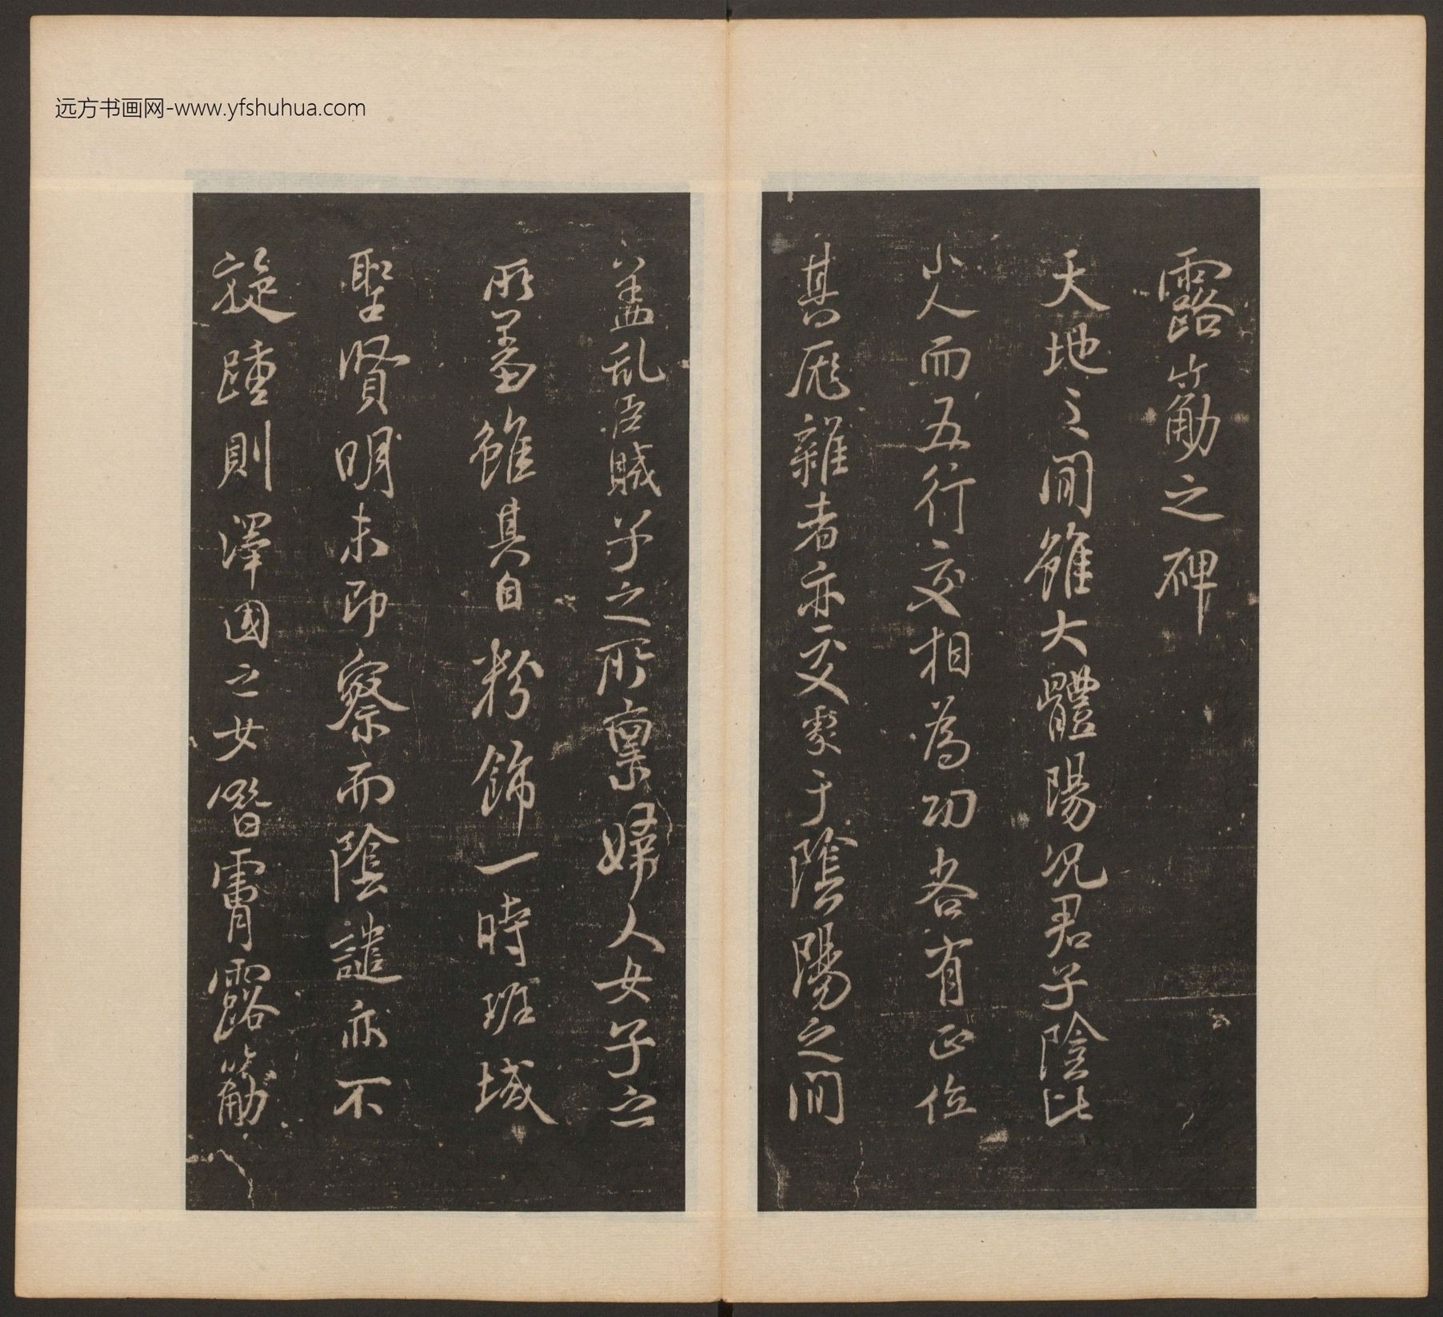 远方书画网-www.yfshuhua.com
露筋之碑
天地之間雖大體陽況君子陰比
小人而五行交相為功各有正位
其厖雜者亦交聚于陰陽之間
蓋亂臣賊子之所稟婦人女子之
所羞雖其自粉飾一時班域
聖賢明未即察而陰譴亦不
旋踵則澤國之女暬霄露筋